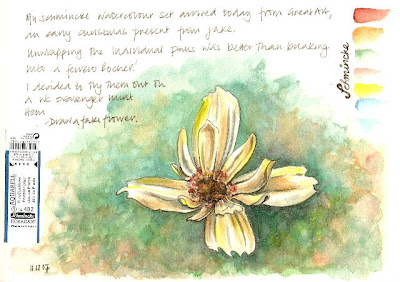 My Schmincke watercolour set arrived today from GreatArt,
an early christmas present from Jake.
Unwrapping the individual pans was better than breaking
into a ferrero rocher!
I decided to try them out on
a scavenger hunt
item
- Draw a fake flower.
Schmincke
AQUARELL
Schmincke
HORADAM
11.12.07